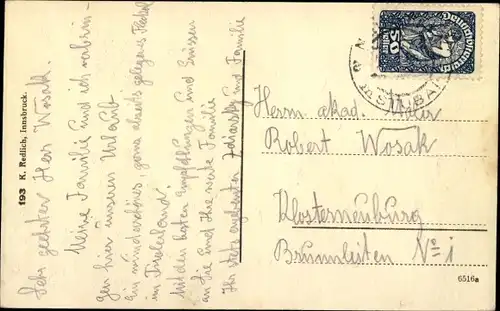 193 K. Redlich, Innsbruck.
Sehr geehrter Herr Wosak.
Meine Familie und ich verbrin-
gen hier unseren Urlaub
Ein wunderschönes, gelegenes
im Tirolerland.
Mit den besten Empfehlungen und Grüssen
an Sie und Ihre werte Familie
Ihr stets ergebener und Familie
Deutschösterreich
50
Heller
Herrn akad. Maler
Robert Wosak
Klosterneuburg
Brunnleiten No 1
6516a